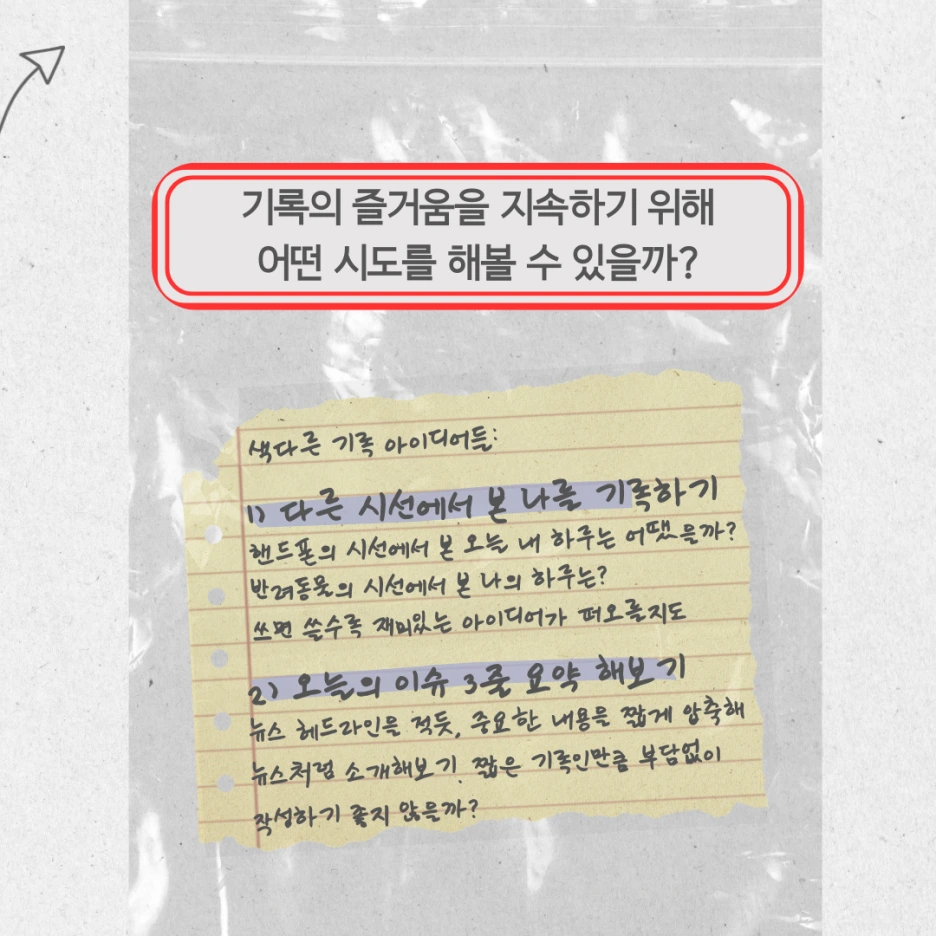 기록의 즐거움을 지속하기 위해
어떤 시도를 해볼 수 있을까?
색다른 기록 아이디어들:
1) 다른 시선에서 본 나를 기록하기
핸드폰의 시선에서 본 오늘 내 하루는 어땠을까?
반려동물의 시선에서 본 나의 하루는?
쓰면 쓸수록 재미있는 아이디어가 떠오를지도
2) 오늘의 이슈 3줄 요약 해보기
뉴스 헤드라인을 적듯, 중요한 내용을 짧게 압축해
뉴스처럼 소개해보기. 짧은 기록인만큼 부담없이
작성하기 좋지 않을까?